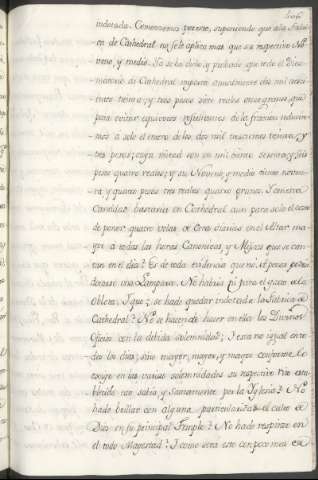 indotada. Comencemos por esto, suponiendo que a la Fabri-
ca de Cathedral no se le aplica mas que su respectivo No-
veno, y medio. Ya se ha dicho, y probado que todo el Diez-
matorio de Cathedral importa anualmente dos mil trecien-
tos treinta, y tres pesos siete reales granos, que
para evitar equivocos resultantes de la fraccion reducire-
mos a solo el entero de los dos mil trescientos treinta, y
tres pesos; cuya mitad son un mil ciento sesenta y seis
pesos quatro reales; y su Noveno, y medio ciento noven-
ta y quatro pesos tres reales quatro granos. I con esta
Cantidad bastaria en Cathedral aun para solo el
de poner quatro velas de Cera en el Altar ma-
yor a todas las horas Canonicas, y Misas que se can-
tan en el dia? Es de toda evidencia que no.
una Lampara. No habria ni para el gasto de la
Oblata. I que; se hade quedar indotada la Fabrica de
Cathedral? No se hacer en ella los Divinos
Oficios con la debida solemnidad; I esta no igual en to-
dos los dias; sino mayor, mayor, y mayor conforme lo
exigen en las varias solemnidades su respectivo rito esta-
blecido tan sabia, y Santamente por la Yglesia? No
hade brillar con alguna particularidad el culto de
Dios en su principal Templo? No hade respirar en
el todo Magestad? I como sera esto con poco mas de